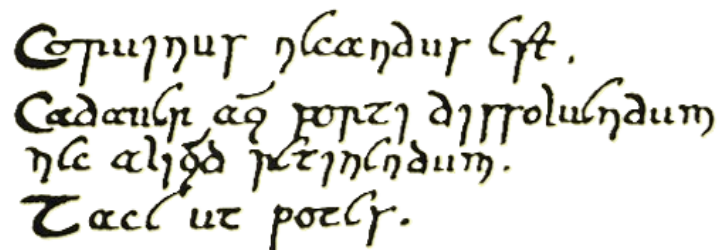 Coruinus necandus est.
Cadauer aq̄ forti dissoluendum
nec aliq̅d retinendum.
Tace ut potes.